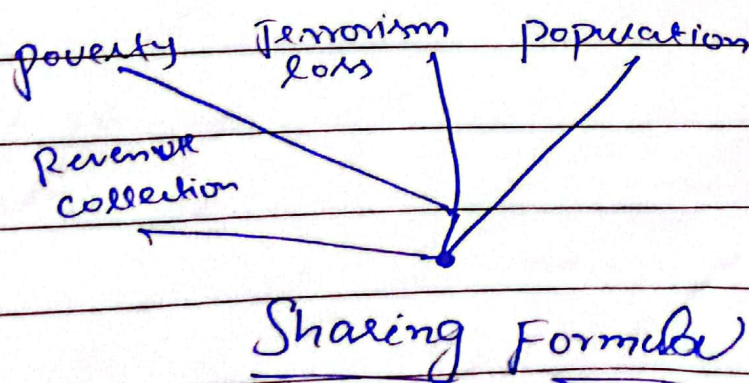 poverty Terrorism population
loss
Revenue
collection
Sharing Formula